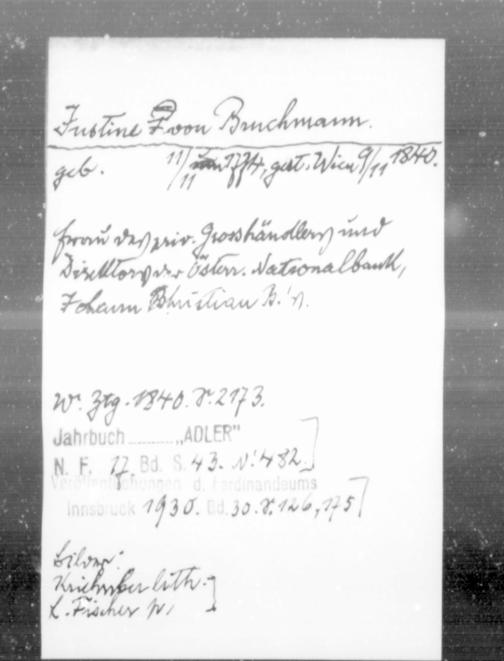 Justine E von Bruchmann.
geb. 11/11 1774, gest. Wien 9/11 1840.
Frau des priv. Grosshändlers und
Direktors der Österr. Nationalbank,
Johann Christian B.'s.
W. Ztg. 1840. S. 2173.
Jahrbuch „ADLER"
N. F. 17 Bd. S. 43. N: 482.
Veröffentlichungen d. Ferdinandeums
Innsbruck 1930. Bd. 30. S. 126, 175
Bilder:
Kriehuber lith.
L. Fischer p.